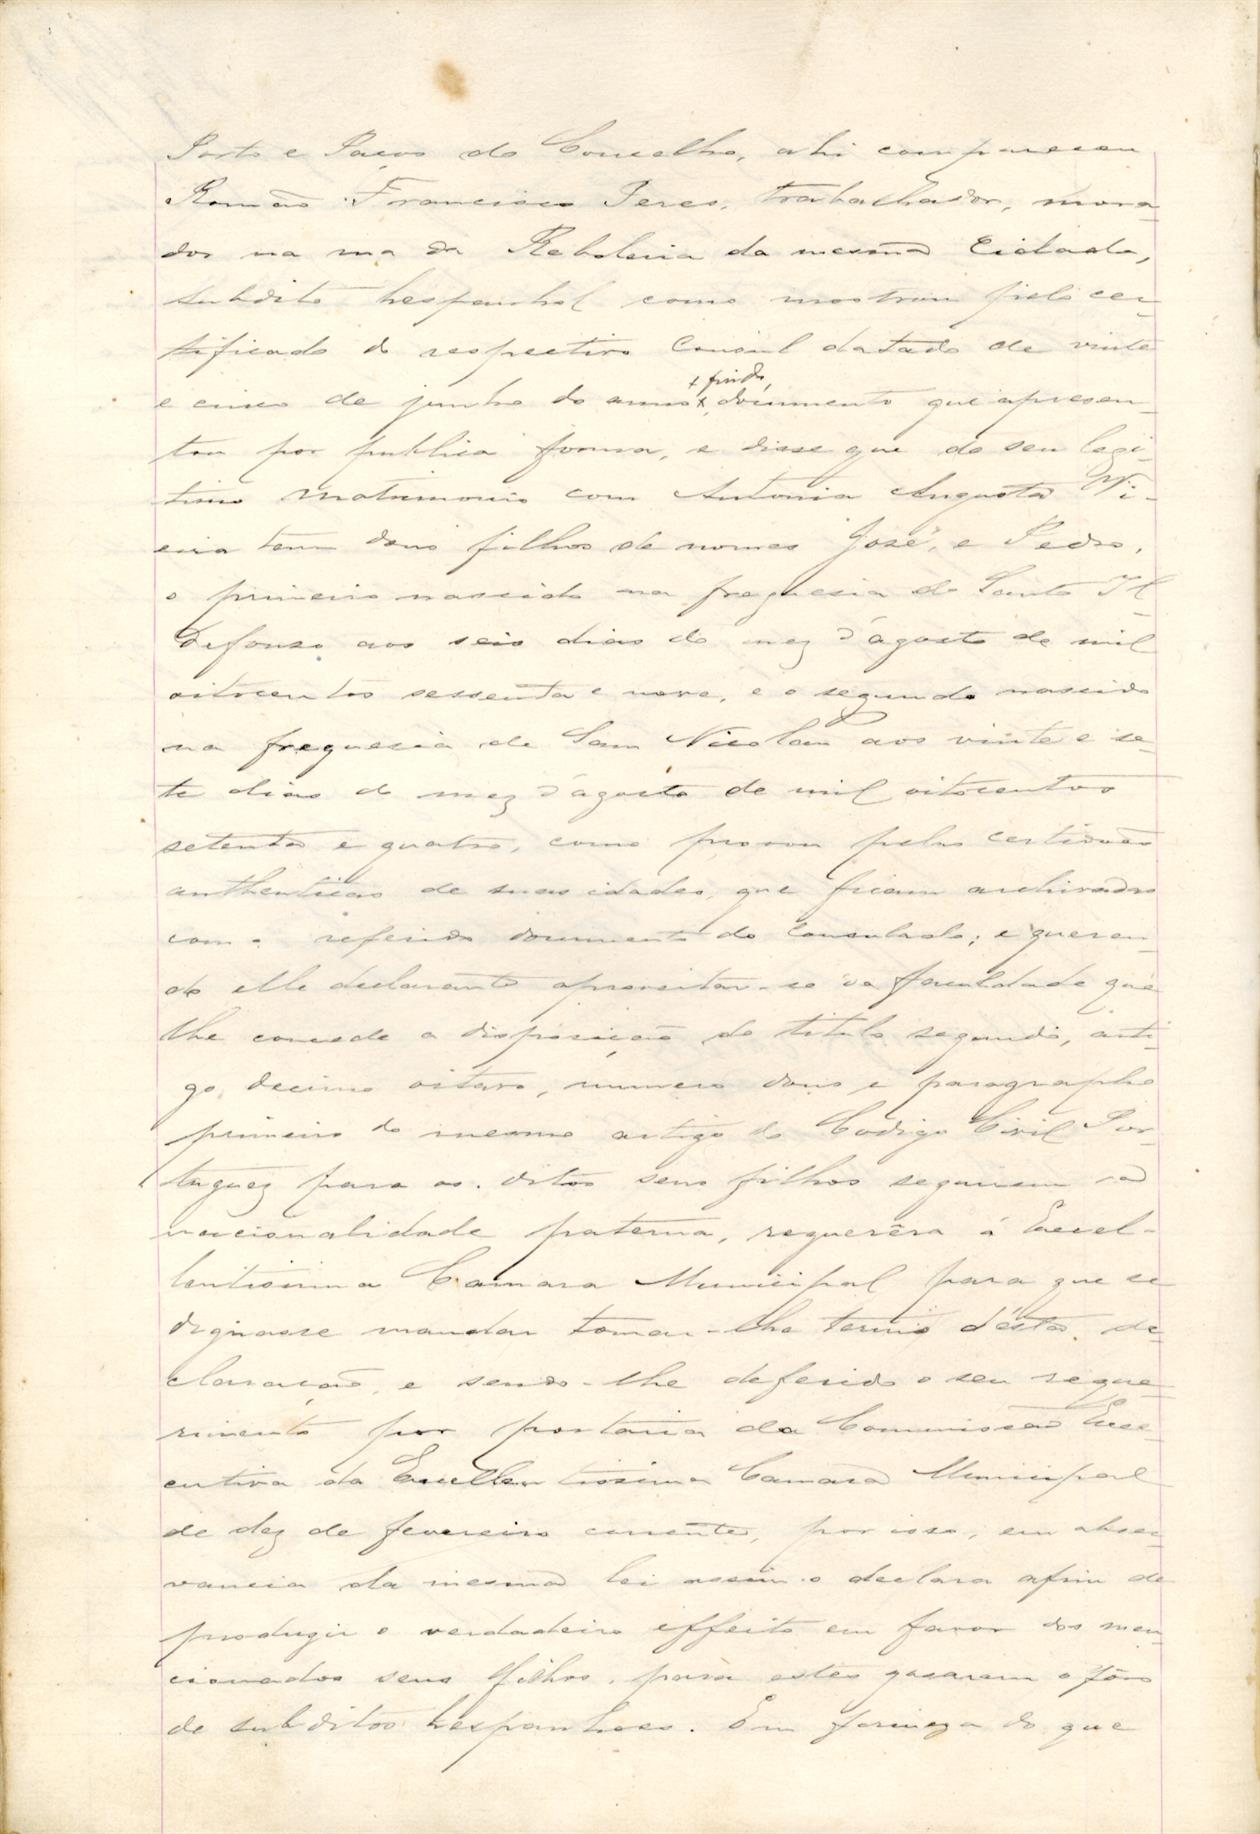 Porto e Paços do Concelho, ahi compareceu
Romão Francisco Peres, trabalhador, mora-
dor na rua da Reboleira da mesma Cidade,
subdito hespanhol como mostrou pelo cer-
tificado do respectivo Consul datado de vinte
e cinco de junho do anno + findo, documento que apresen-
tou por publica forma, e disse que do seu legi-
timo matrimonio com Antonia Augusta Vi-
eira tem dous filhos de nomes José, e Pedro,
o primeiro nascido na freguesia de Santo Il-
defonso aos seis dias do mez d'agosto de mil
oitocentos sessenta e nove, e o segundo nascido
na freguesia de Sam Nicolau aos vinte e se-
te dias do mez d'agosto de mil oitocentos
setenta e quatro, como provou pelas certidões
authenticas de suas idades, que ficam archivadas
com o referido documento do Consulado; e queren-
do elle declarante aproveitar-se da faculdade que
lhe concede a disposição do titulo segundo, arti-
go decimo oitavo, numero dous e paragrapho
primeiro do mesmo artigo do Codigo Civil Por-
tuguez para os ditos seus filhos seguirem a
nacionalidade paterna, requerêra á Excel-
lentissima Camara Municipal para que se
dignasse mandar tomar-lhe termo d'esta de-
claração, e sendo-lhe deferido o seu reque-
rimento por portaria da Commissão Exe-
cutiva da Excellentissima Camara Municipal
de dez de fevereiro corrente, por isso, em obser-
vancia da mesma lei assim o declara afim de
produzir o verdadeiro effeito em favor dos men-
cionados seus filhos, para estes gosarem o fôro
de subditos hespanhoes. Em firmeza do que